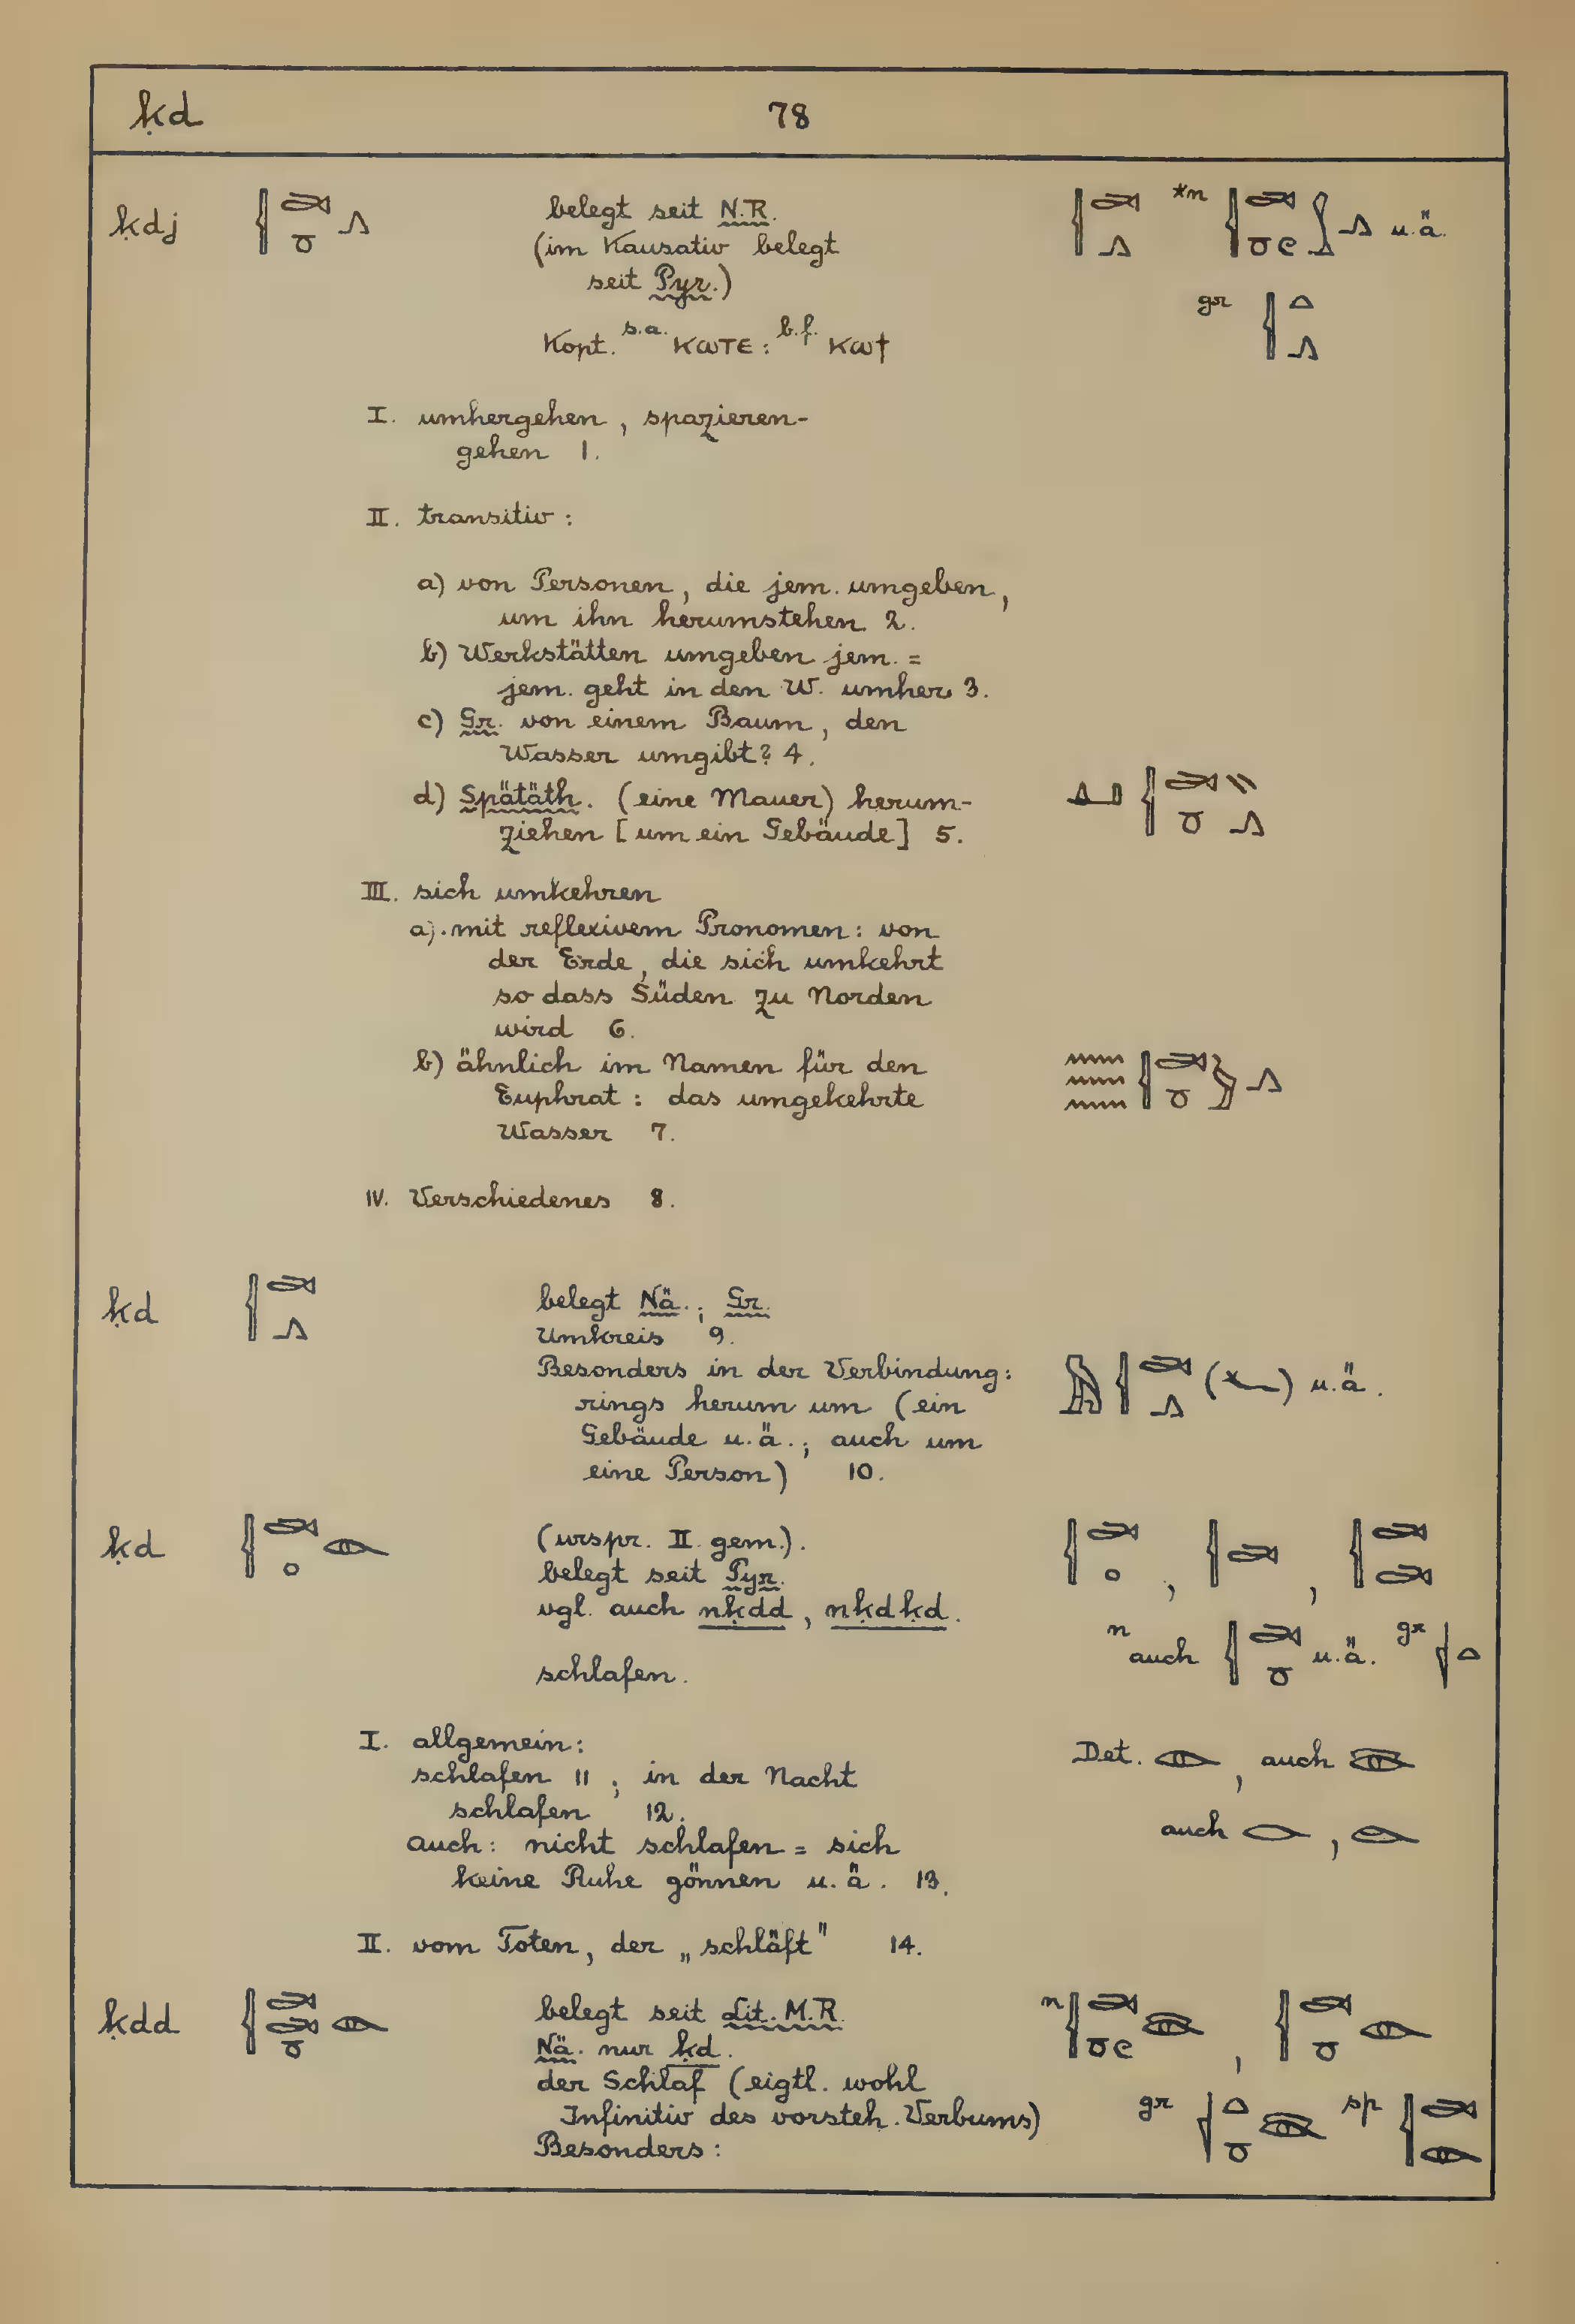 ḳd
78
ḳdj
belegt seit N.R.
(im Kausativ belegt
seit Pyr.)
Kopt. s.a. ⲕⲱⲧⲉ : b.f. ⲕⲱϯ
*n u.ä.
gr
I. umhergehen, spazieren-
gehen 1.
II. transitiv:
a) von Personen, die jem. umgeben,
um ihn herumstehen 2.
b) Werkstätten umgeben jem. =
jem. geht in den W. umher 3.
c) Gr. von einem Baum, den
Wasser umgibt? 4.
d) Spätäth. (eine Mauer) herum-
ziehen [um ein Gebäude] 5.
III. sich umkehren
a). mit reflexivem Pronomen: von
der Erde, die sich umkehrt
so dass Süden zu Norden
wird 6.
b) ähnlich im Namen für den
Euphrat: das umgekehrte
Wasser 7.
IV. Verschiedenes 8.
ḳd
belegt Nä.; Gr.
Umkreis 9.
Besonders in der Verbindung:
rings herum um (ein
Gebäude u.ä.; auch um
eine Person) 10.
u.ä.
ḳd
(urspr. II. gem.).
belegt seit Pyr.
vgl. auch nḳdd, nḳdḳd.
schlafen.
n auch u.ä. gr
I. allgemein:
schlafen 11; in der Nacht
schlafen 12.
auch: nicht schlafen = sich
keine Ruhe gönnen u.ä. 13.
Det. , auch
auch ,
II. vom Toten, der „schläft" 14.
ḳdd
belegt seit Lit. M.R.
Nä. nur ḳd.
der Schlaf (eigtl. wohl
Infinitiv des vorsteh. Verbums)
Besonders:
n ,
gr sp